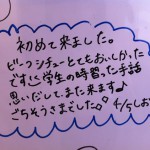 初めて来ました。
ビーフシチューとてもおいしかった
ですし、学生の時習った手話
思いだして、また来ます♪
ごちそうさまでした。4/5しおり